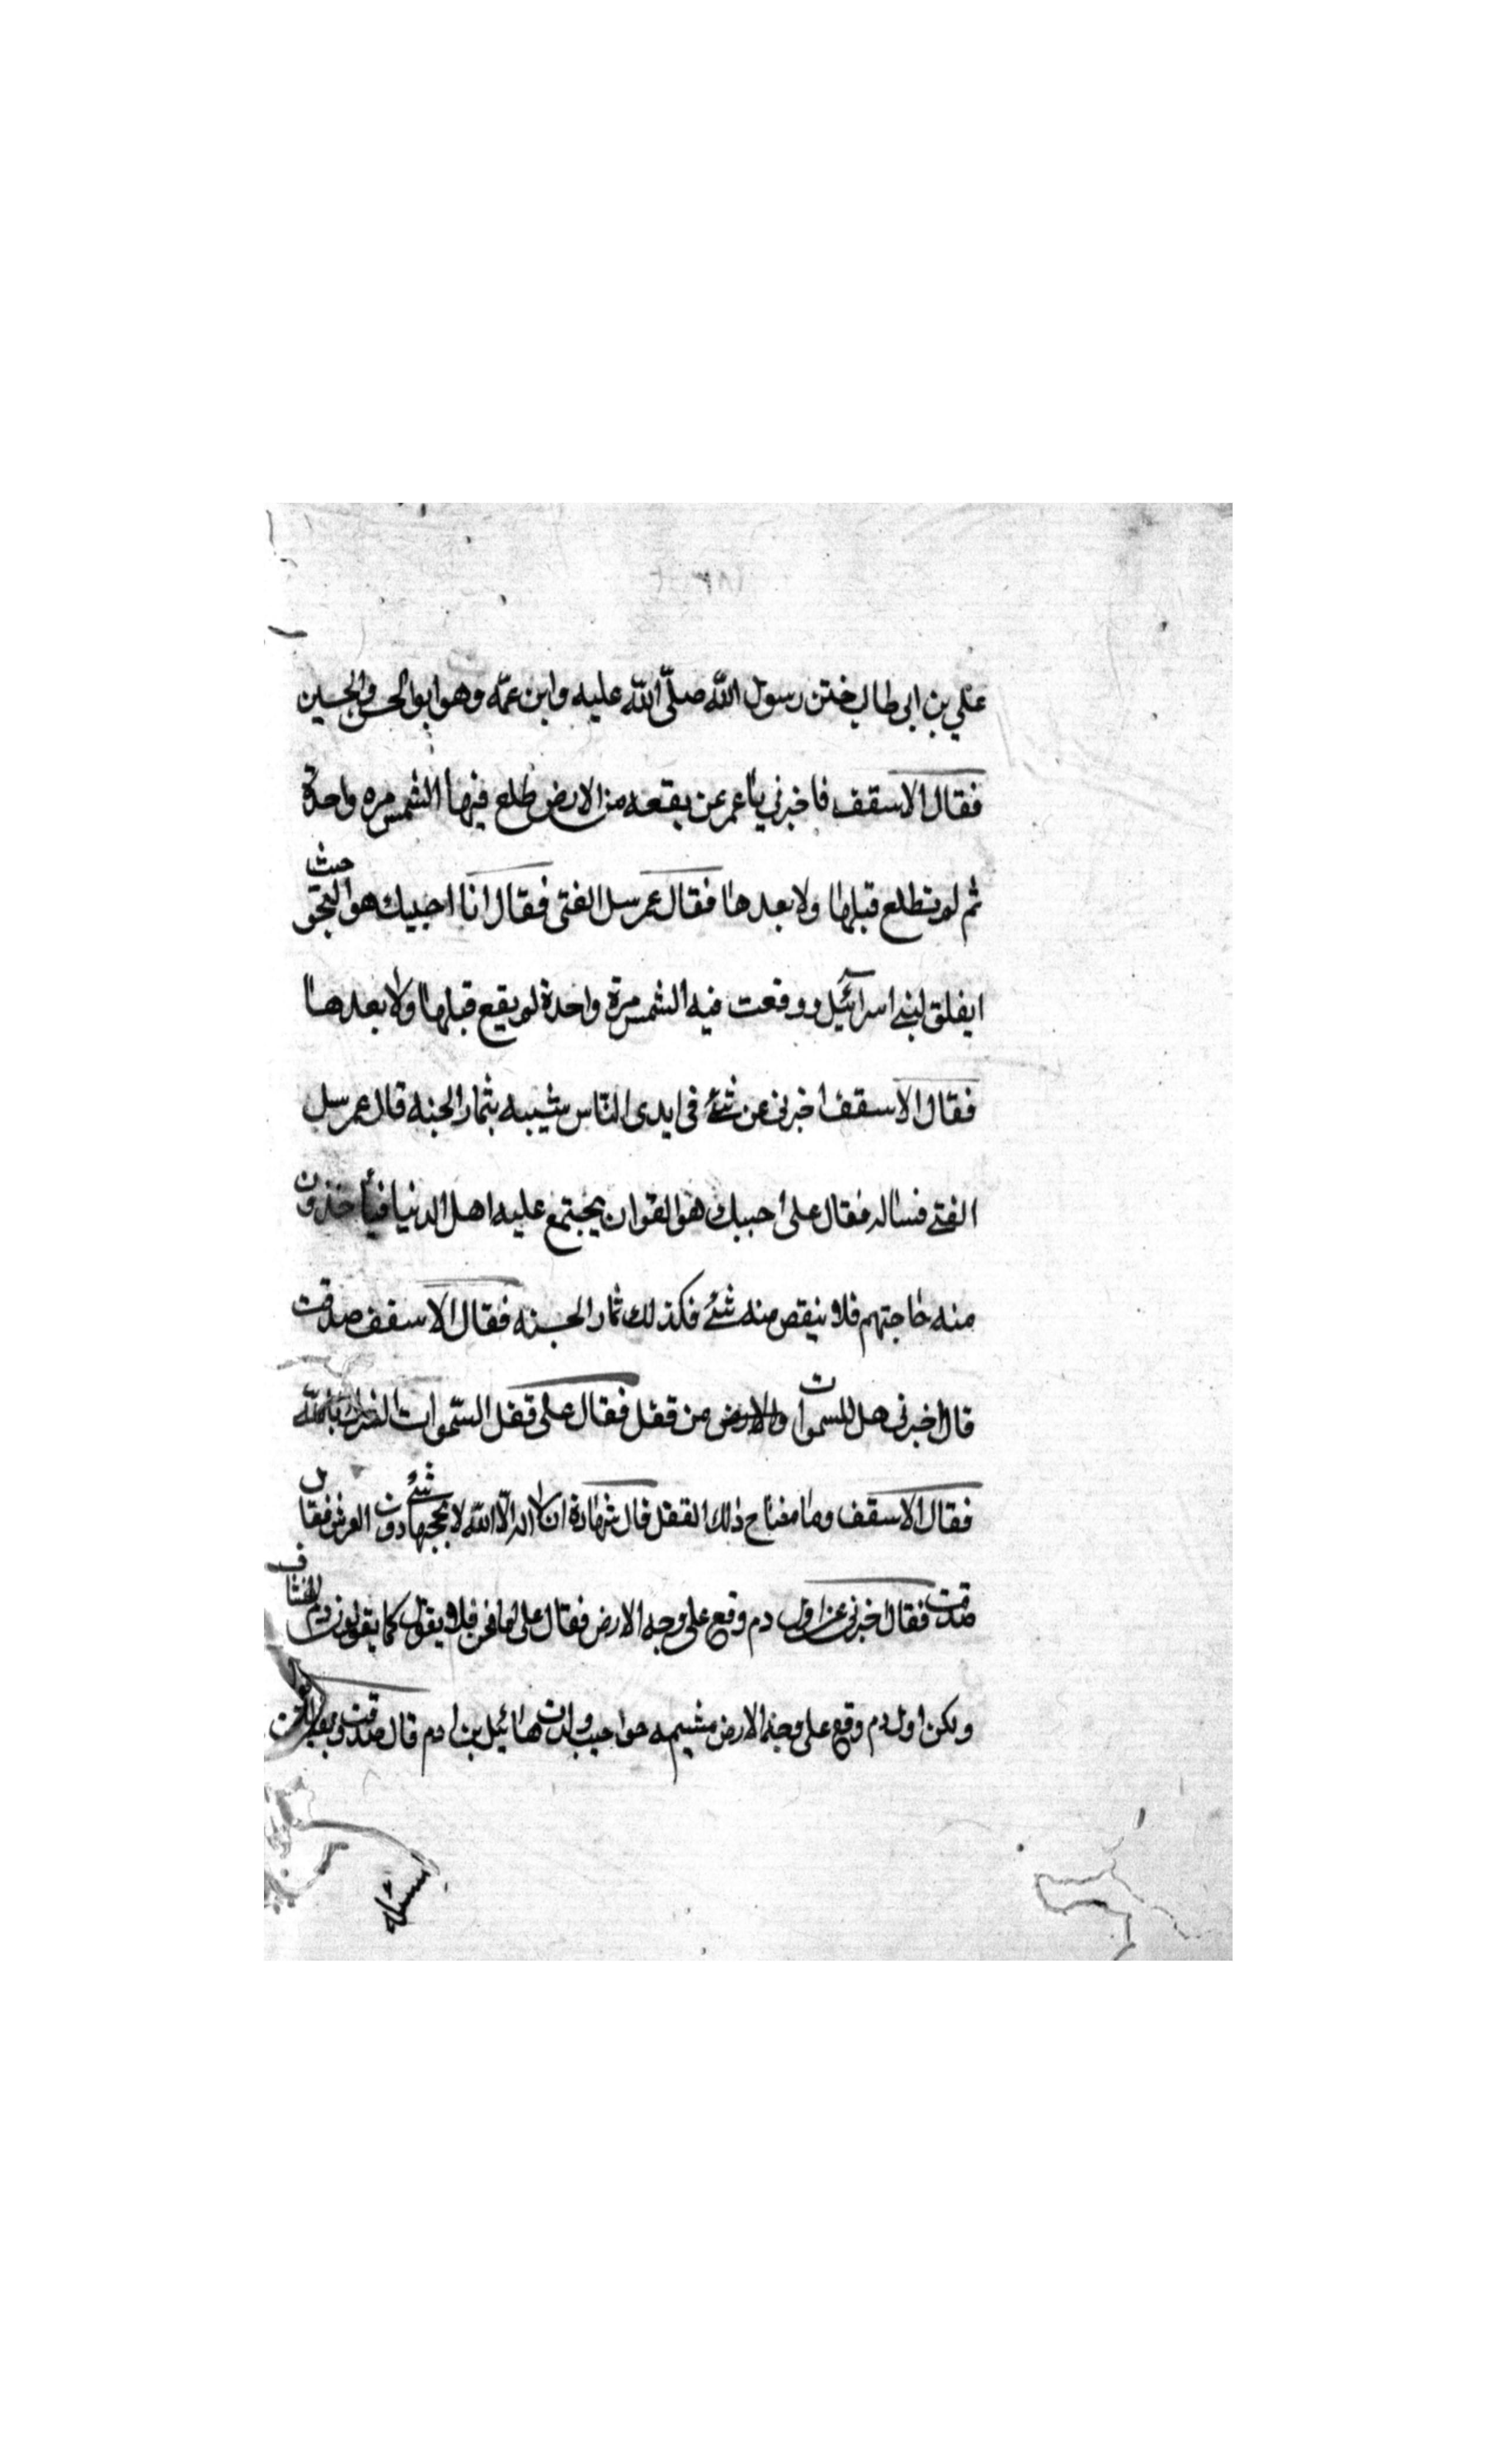 علي بن ابي طالب ختن رسول الله صلّى الله عليه وابن عمّه وهو ابو الحسن والحسين
فقال الاسقف فاخبرني يا عمر عن بقعه من الارض طلع فيها الشمس مره واحدة
ثم لم تطلع قبلها ولا بعدها فقال عمر سل الفتى فقال انا اجيبك هو البحر حيث
ايفلق لبني اسرآئيل ووقعت فيه الشمس مرة واحدة لم يقع قبلها ولا بعدها
فقال الاسقف اخبرني عن شئ في ايدى الناس شبيه بثمار الجنه قال عمر سل
الفتى فساله فقال على اجيبك هو القران يجتمع عليه اهل الدنيا فيأخذون
منه حاجتهم فلا ينقص منه شئ فكذلك ثمار الجنه فقال الاسقف صدقت
قال اخبرني هل للسموات والارض من قفل فقال على قفل السّموات الشرك بالله
فقال الاسقف وما مفتاح ذلك القفل قال شهادة ان لا اله الّا الله لا يحجبها شئ دون العرش فقال
صدقت فقال اخبرني عن اول دم وقع على وجه الارض فقال على اما نحن فلا يقول كما يقولون دم الخشاف
ولكن اول دم وقع على وجه الارض مشيمه حوا حيث ولدت هابيل بن ادم قال صدقت وبقيت
مسئله